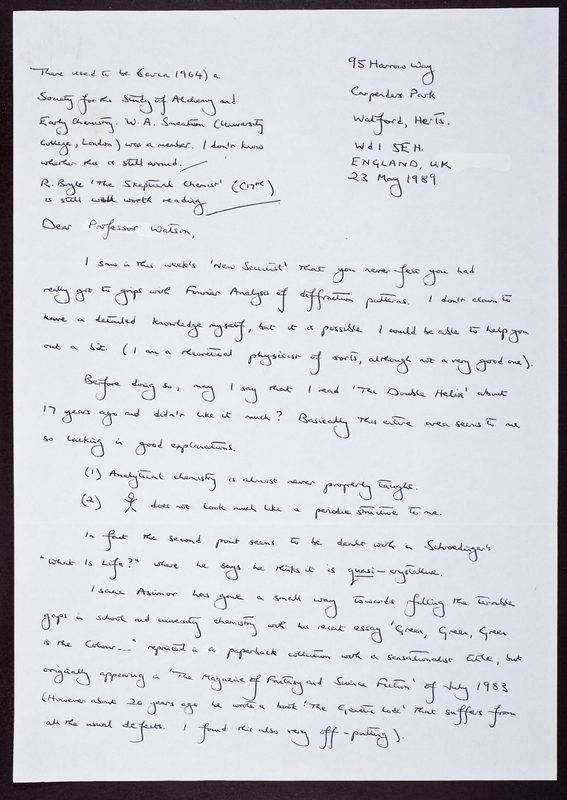 There used to be (circa 1964) a
Society for the Study of Alchemy and
Early Chemistry. W. A. Smeaton (University
College, London) was a member. I don't know
whether this is still around.
R. Boyle 'The Skeptical Chemist' (C17th)
is still well worth reading
95 Harrow Way
Carpenders Park
Watford, Herts.
WD1 5EH.
ENGLAND, UK
23 May 1989
Dear Professor Watson,
I saw in this week's 'New Scientist' that you never felt you had
really got to grips with Fourier Analysis of diffraction patterns. I don't claim to
have a detailed knowledge myself, but it is possible I could be able to help you
out a bit. (I am a theoretical physicist of sorts, although not a very good one).
Before doing so, may I say that I read 'The Double Helix' about
17 years ago and didn't like it much? Basically this entire area seems to me
so lacking in good explanations.
(1) Analytical chemistry is almost never properly taught.
(2) does not look much like a periodic structure to me.
In fact the second point seems to be dealt with in Schroedinger's
"What Is Life?" where he says he thinks it is quasi-crystalline.
Isaac Asimov has gone a small way towards filling the terrible
gaps in school and university chemistry with his recent essay 'Green, Green, Green
is the Colour..." reprinted in a paperback collection with a sensationalist title, but
originally appearing in 'The Magazine of Fantasy and Science Fiction' of July 1983
(However about 20 years ago he wrote a book 'The Genetic Code' that suffers from
all the usual defects. I found this also very off-putting).